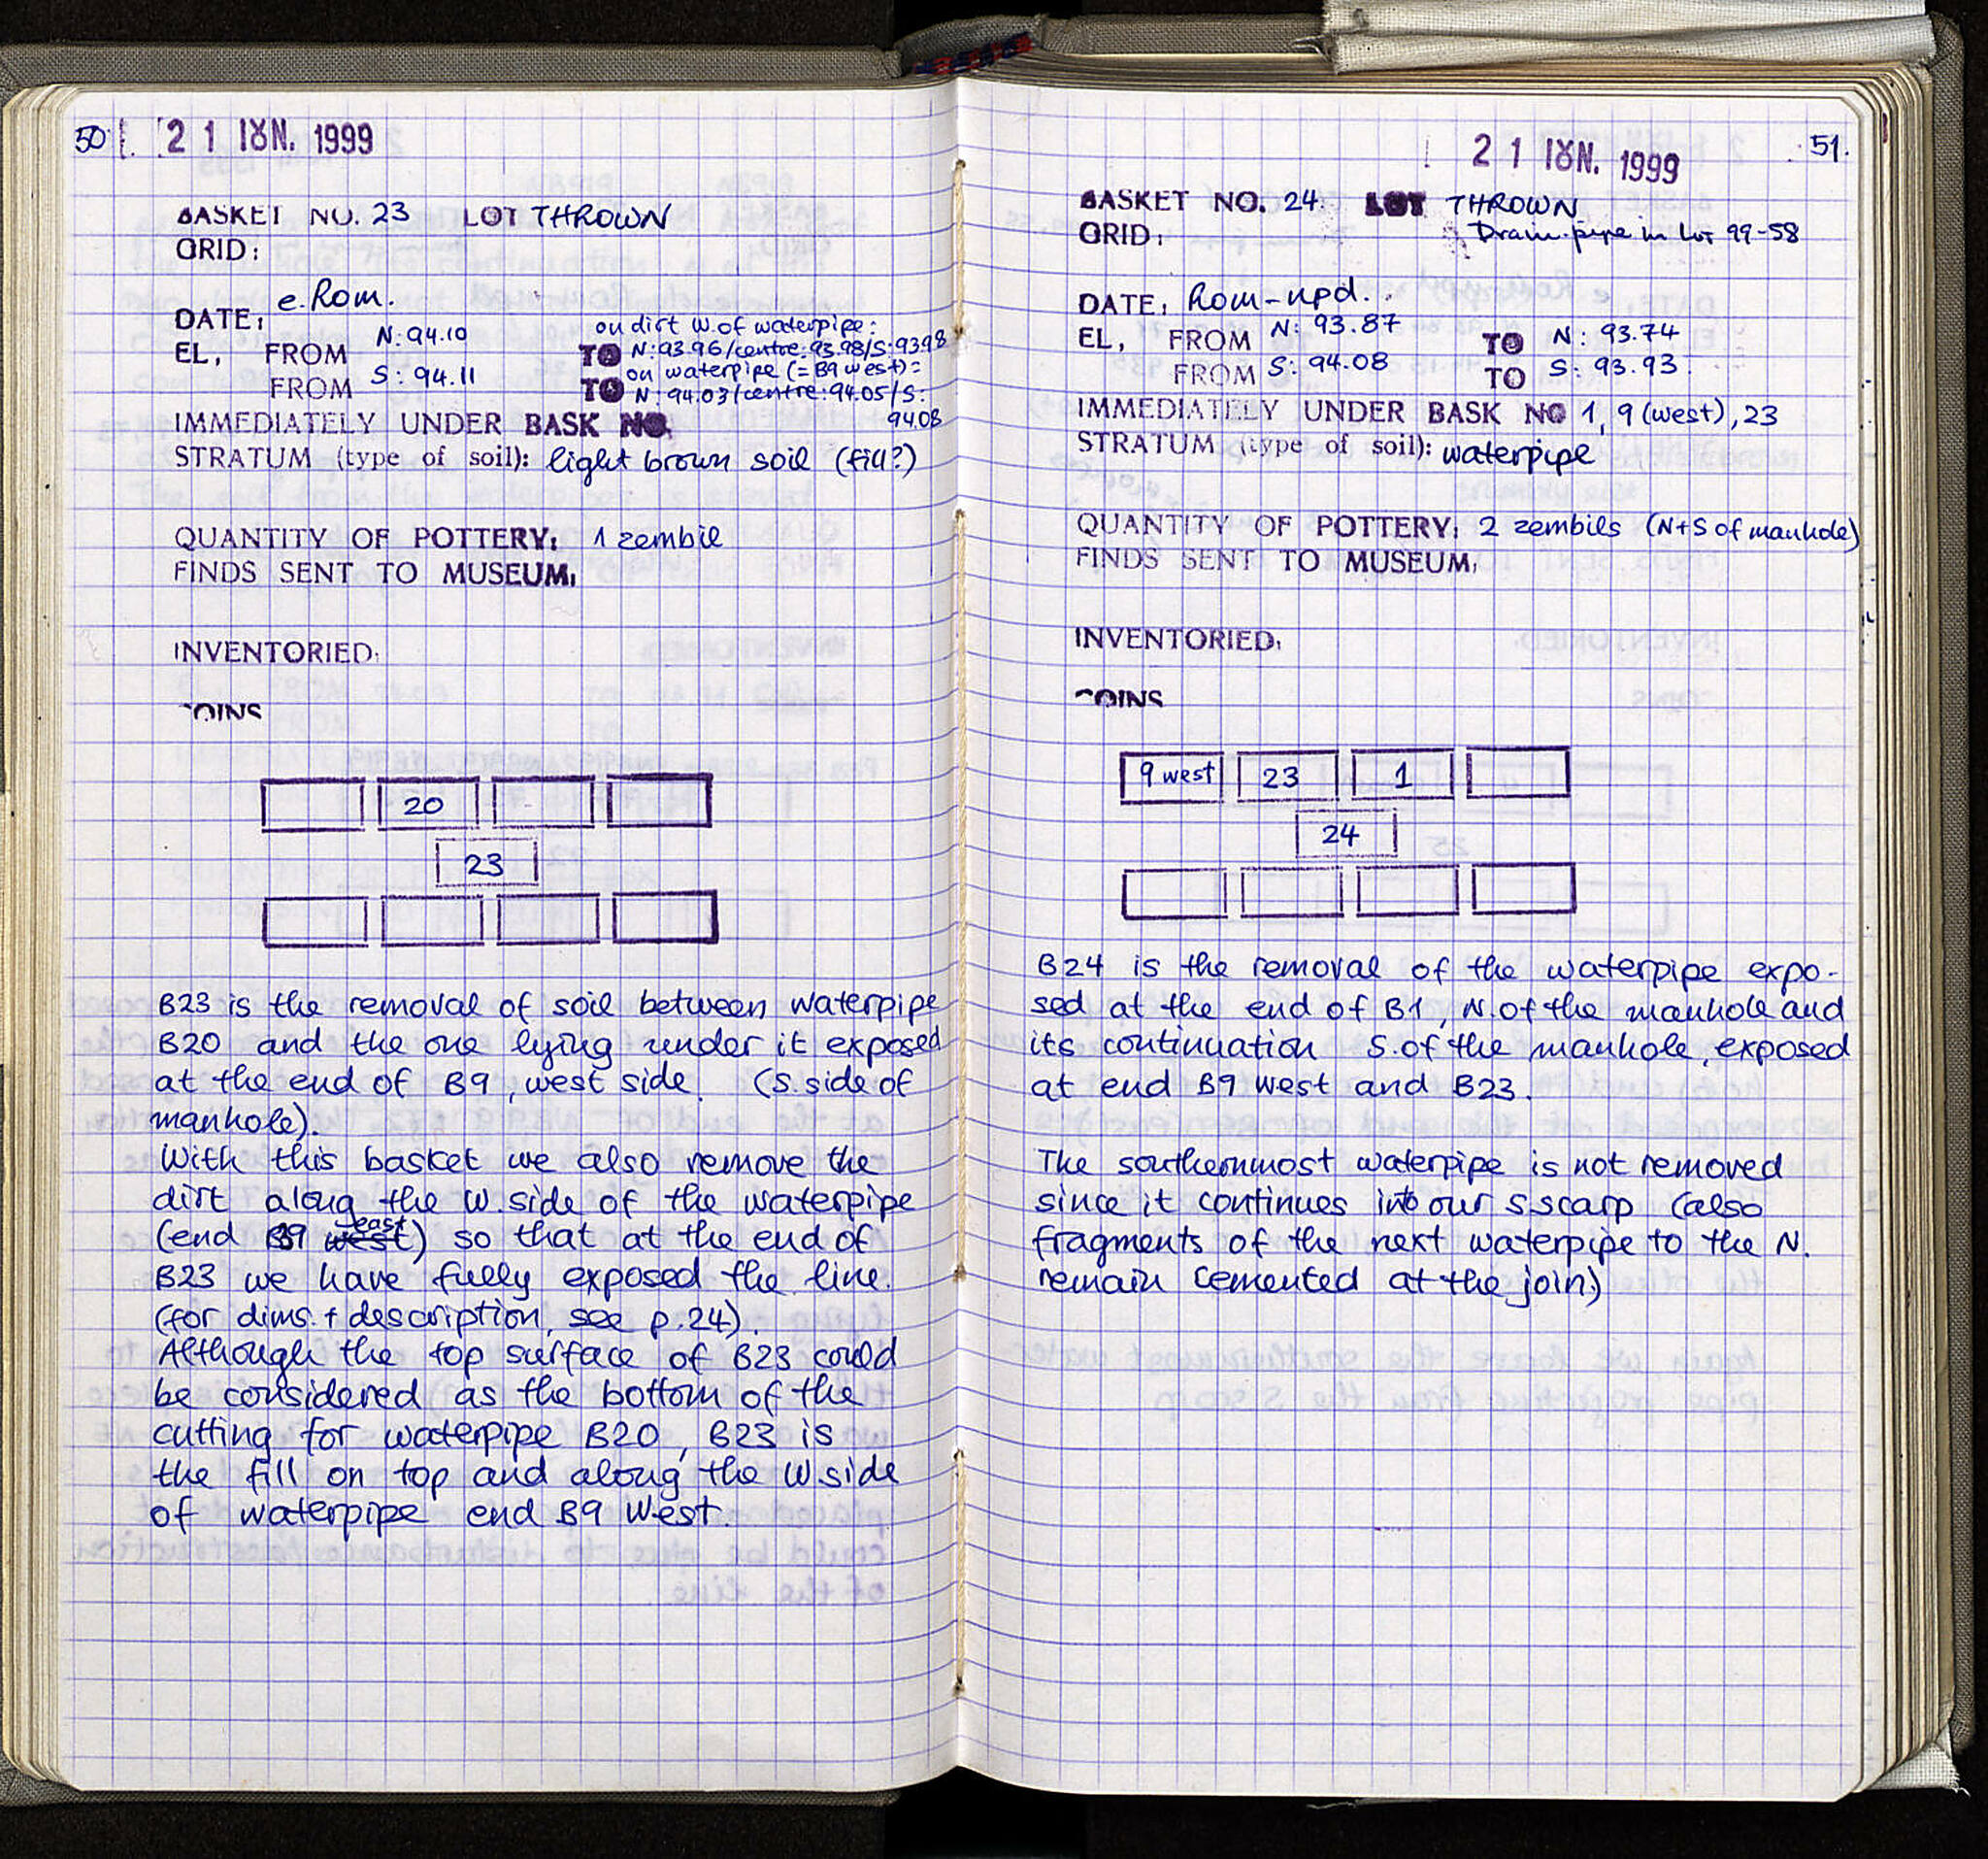 50
21 ΙΟΥΝ. 1999
BASKET NO. 23 LOT THROWN
GRID:
e. Rom.
DATE:
on dirt W. of waterpipe:
EL, FROM N: 94.10 TO N: 93.96/centre: 93.98/S: 93.98
on waterpipe (= B9 west):
FROM S: 94.11 TO N: 94.03/centre: 94.05/S:
94.08
IMMEDIATELY UNDER BASK NO.
STRATUM (type of soil): light brown soil (fill?)
QUANTITY OF POTTERY: 1 zembil
FINDS SENT TO MUSEUM:
INVENTORIED:
COINS
20
23
B23 is the removal of soil between waterpipe
B20 and the one lying under it exposed
at the end of B9, west side. (S. side of
manhole).
With this basket we also remove the
dirt along the W. side of the waterpipe
east
(end B9 west) so that at the end of
B23 we have fully exposed the line.
(for dims. + description, see p. 24).
Although the top surface of B23 could
be considered as the bottom of the
cutting for waterpipe B20, B23 is
the fill on top and along the W side
of waterpipe end B9 West.
51.
21 ΙΟΥΝ. 1999
BASKET NO. 24 LOT THROWN
GRID: Drain pipe in Lot 99-58
DATE: Rom-npd.
EL, FROM N: 93.87 TO N: 93.74
FROM S: 94.08 TO S: 93.93
IMMEDIATELY UNDER BASK NO 1, 9 (west), 23
STRATUM (type of soil): waterpipe
QUANTITY OF POTTERY: 2 zembils (N+S of manhole)
FINDS SENT TO MUSEUM:
INVENTORIED:
COINS
9 west 23 1
24
B24 is the removal of the waterpipe expo-
sed at the end of B1, N. of the manhole and
its continuation S. of the manhole, exposed
at end B9 west and B23.
The southernmost waterpipe is not removed
since it continues into our S scarp (also
fragments of the next waterpipe to the N.
remain cemented at the join)